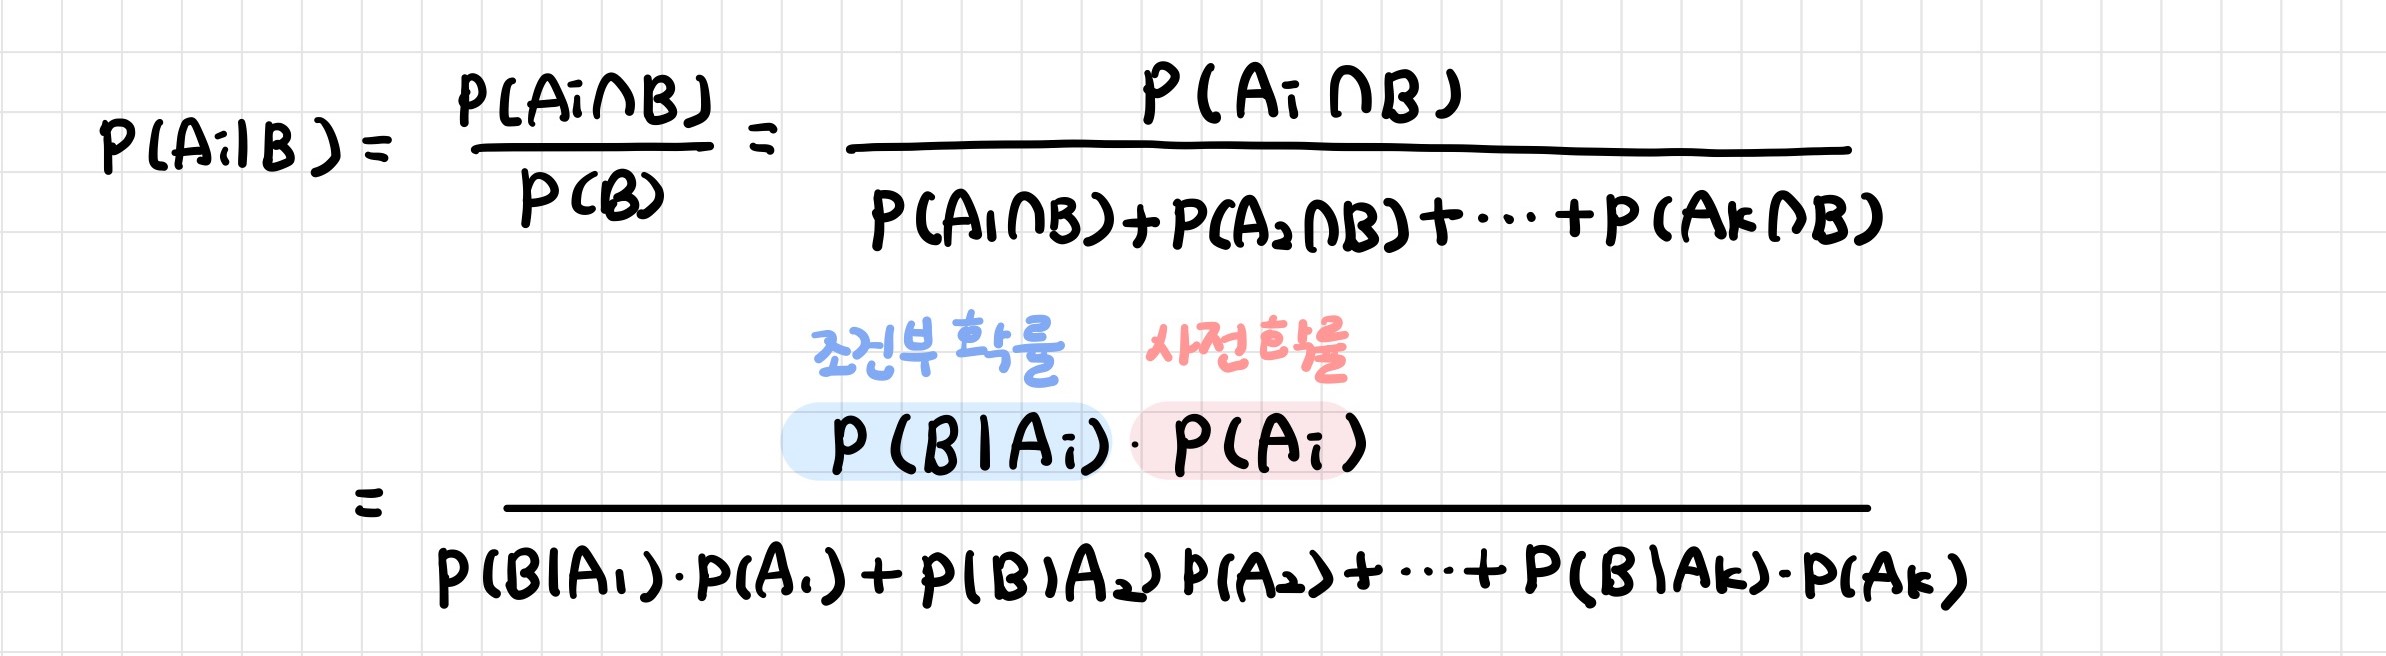 P(Ai|B) = P(Ai∩B) / P(B) = P(Ai∩B) / P(A₁∩B)+P(A₂∩B)+⋯+P(Ak∩B)
조건부 확률 사전확률
= P(B|Ai)·P(Ai) / P(B|A₁)·P(A₁)+P(B|A₂)P(A₂)+⋯+P(B|Ak)·P(Ak)